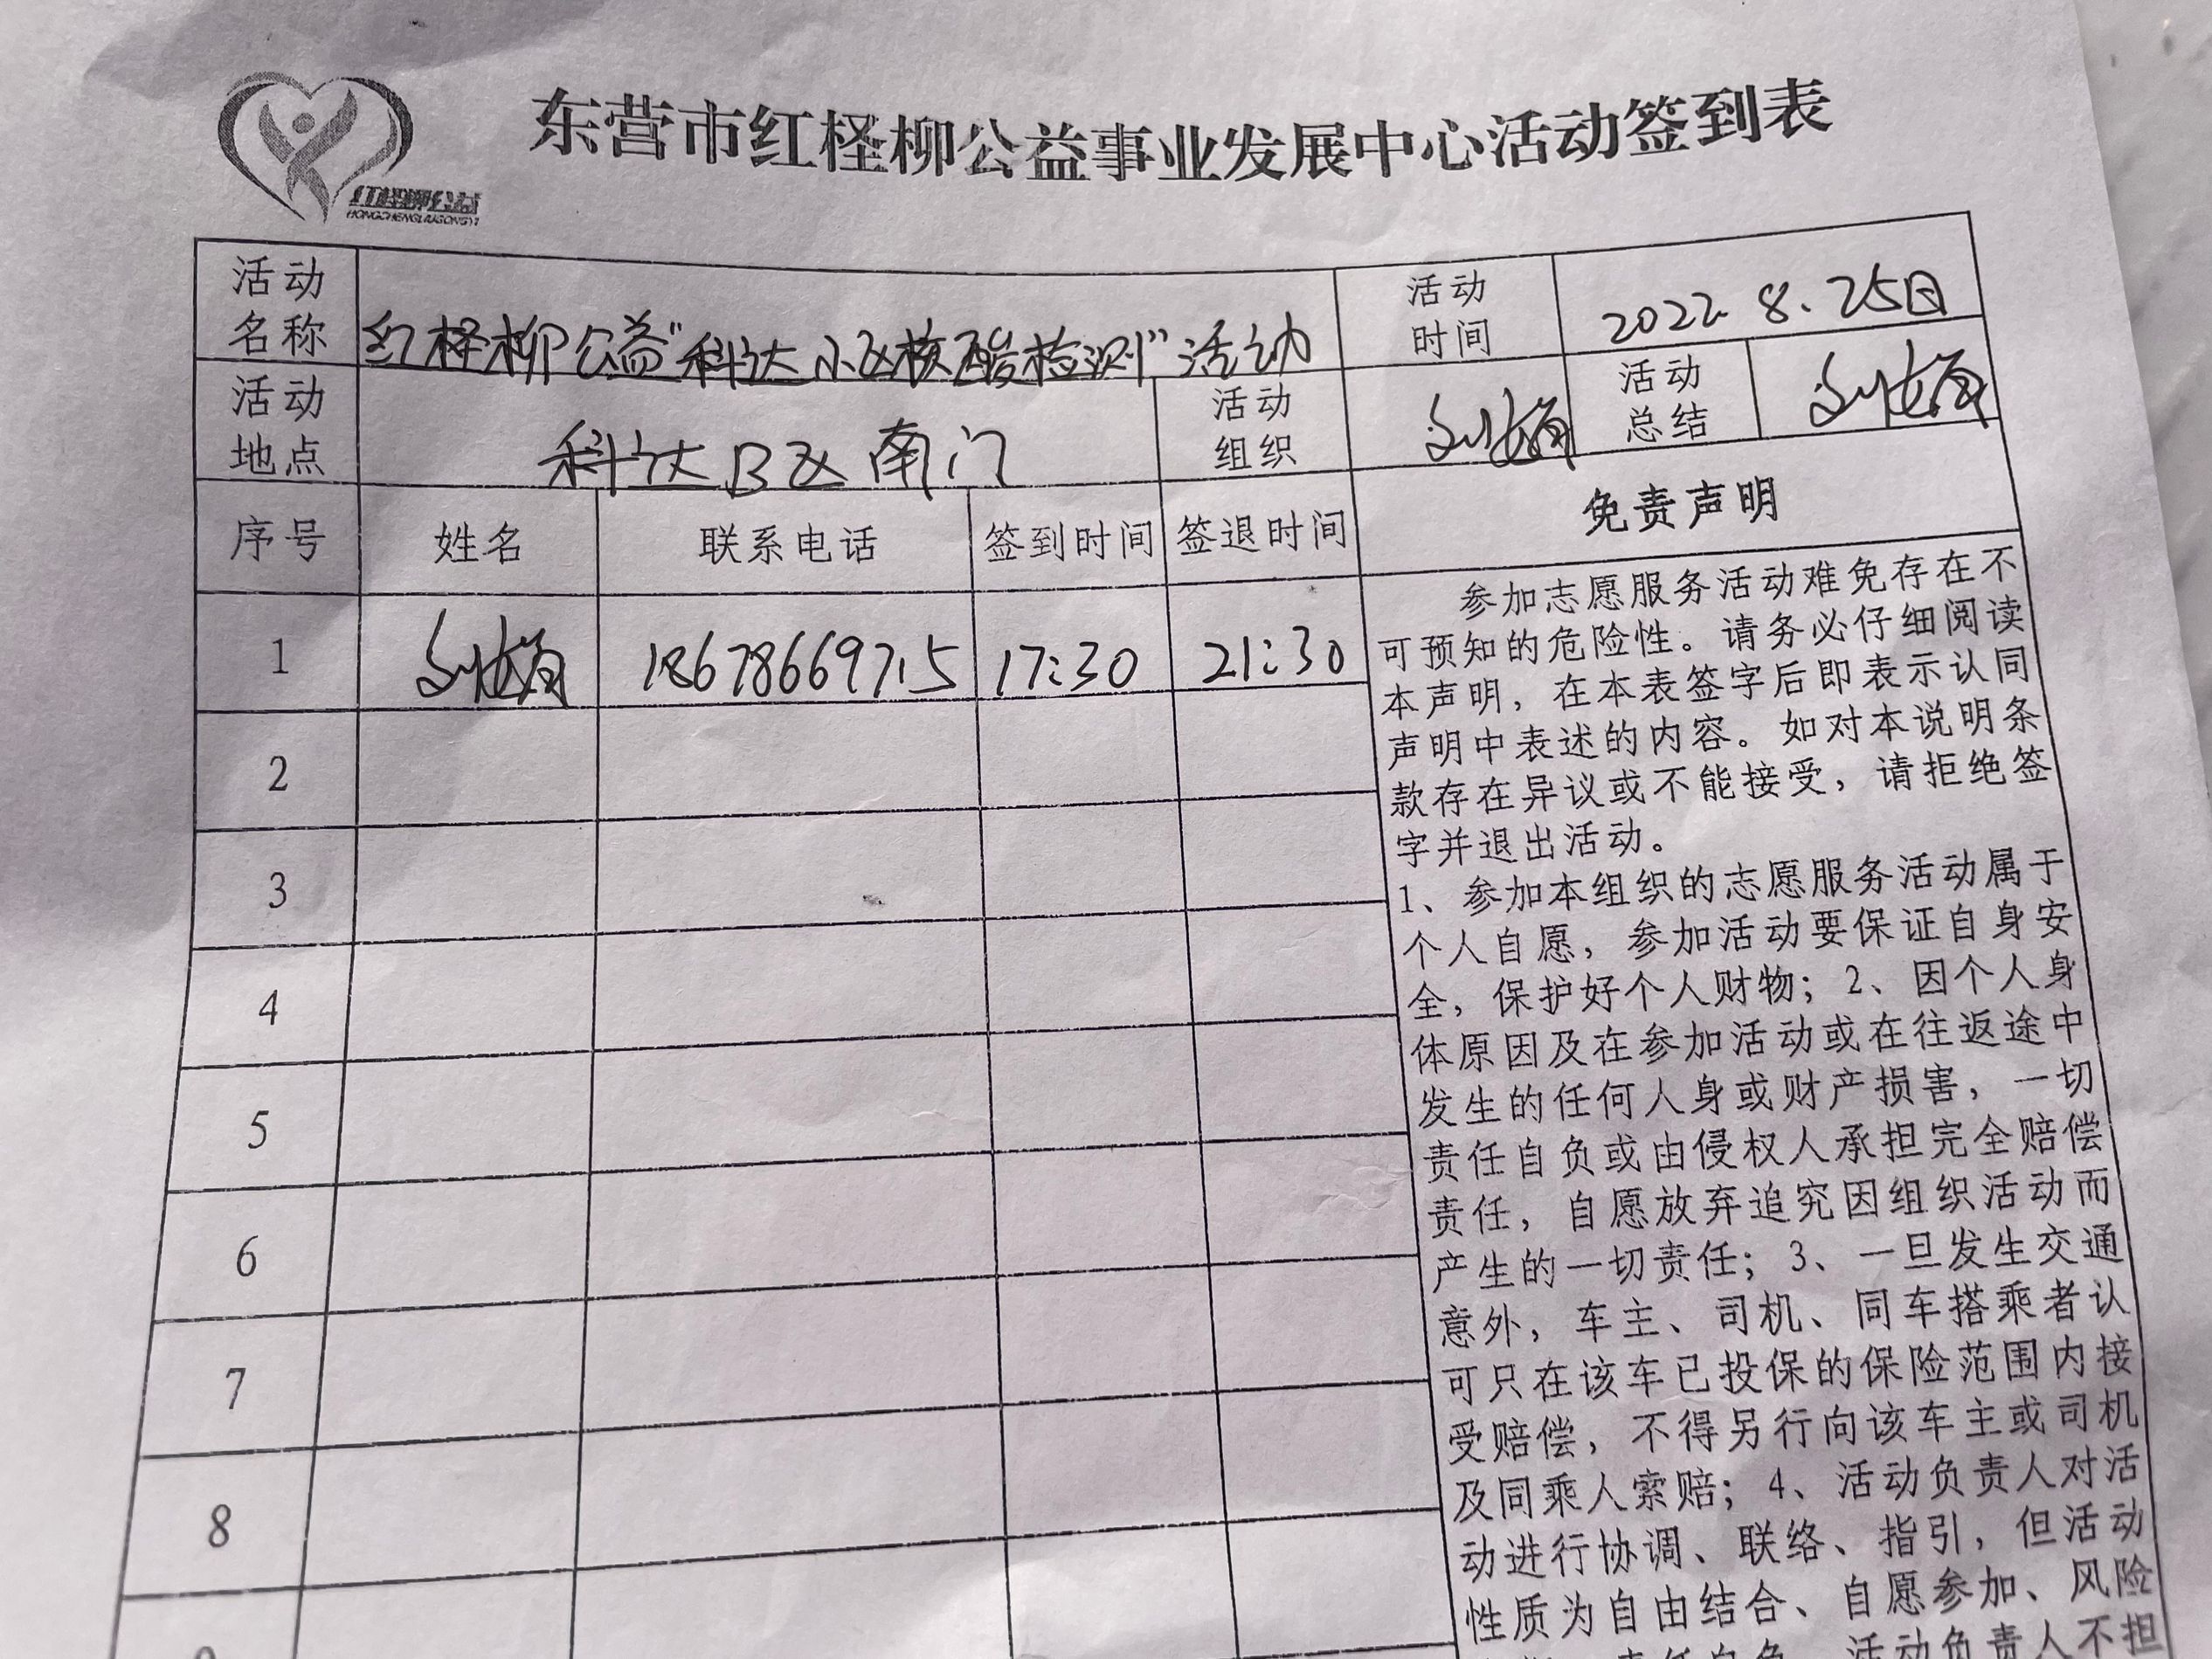 东营市红柽柳公益事业发展中心活动签到表
红柽柳公益
HONGCHENGLIUGONGYI
活动名称 红柽柳公益"科达小区核酸检测"活动 活动时间 2022.8.25日
活动地点 科达B区南门 活动组织 活动总结
序号 姓名 联系电话 签到时间 签退时间 免责声明
1 18678669715 17:30 21:30
2
3
4
5
6
7
8
参加志愿服务活动难免存在不
可预知的危险性。请务必仔细阅读
本声明，在本表签字后即表示认同
声明中表述的内容。如对本说明条
款存在异议或不能接受，请拒绝签
字并退出活动。
1、参加本组织的志愿服务活动属于
个人自愿，参加活动要保证自身安
全，保护好个人财物；2、因个人身
体原因及在参加活动或在往返途中
发生的任何人身或财产损害，一切
责任自负或由侵权人承担完全赔偿
责任，自愿放弃追究因组织活动而
产生的一切责任；3、一旦发生交通
意外，车主、司机、同车搭乘者认
可只在该车已投保的保险范围内接
受赔偿，不得另行向该车主或司机
及同乘人索赔；4、活动负责人对活
动进行协调、联络、指引，但活动
性质为自由结合、自愿参加、风险
责任自负，活动负责人不担